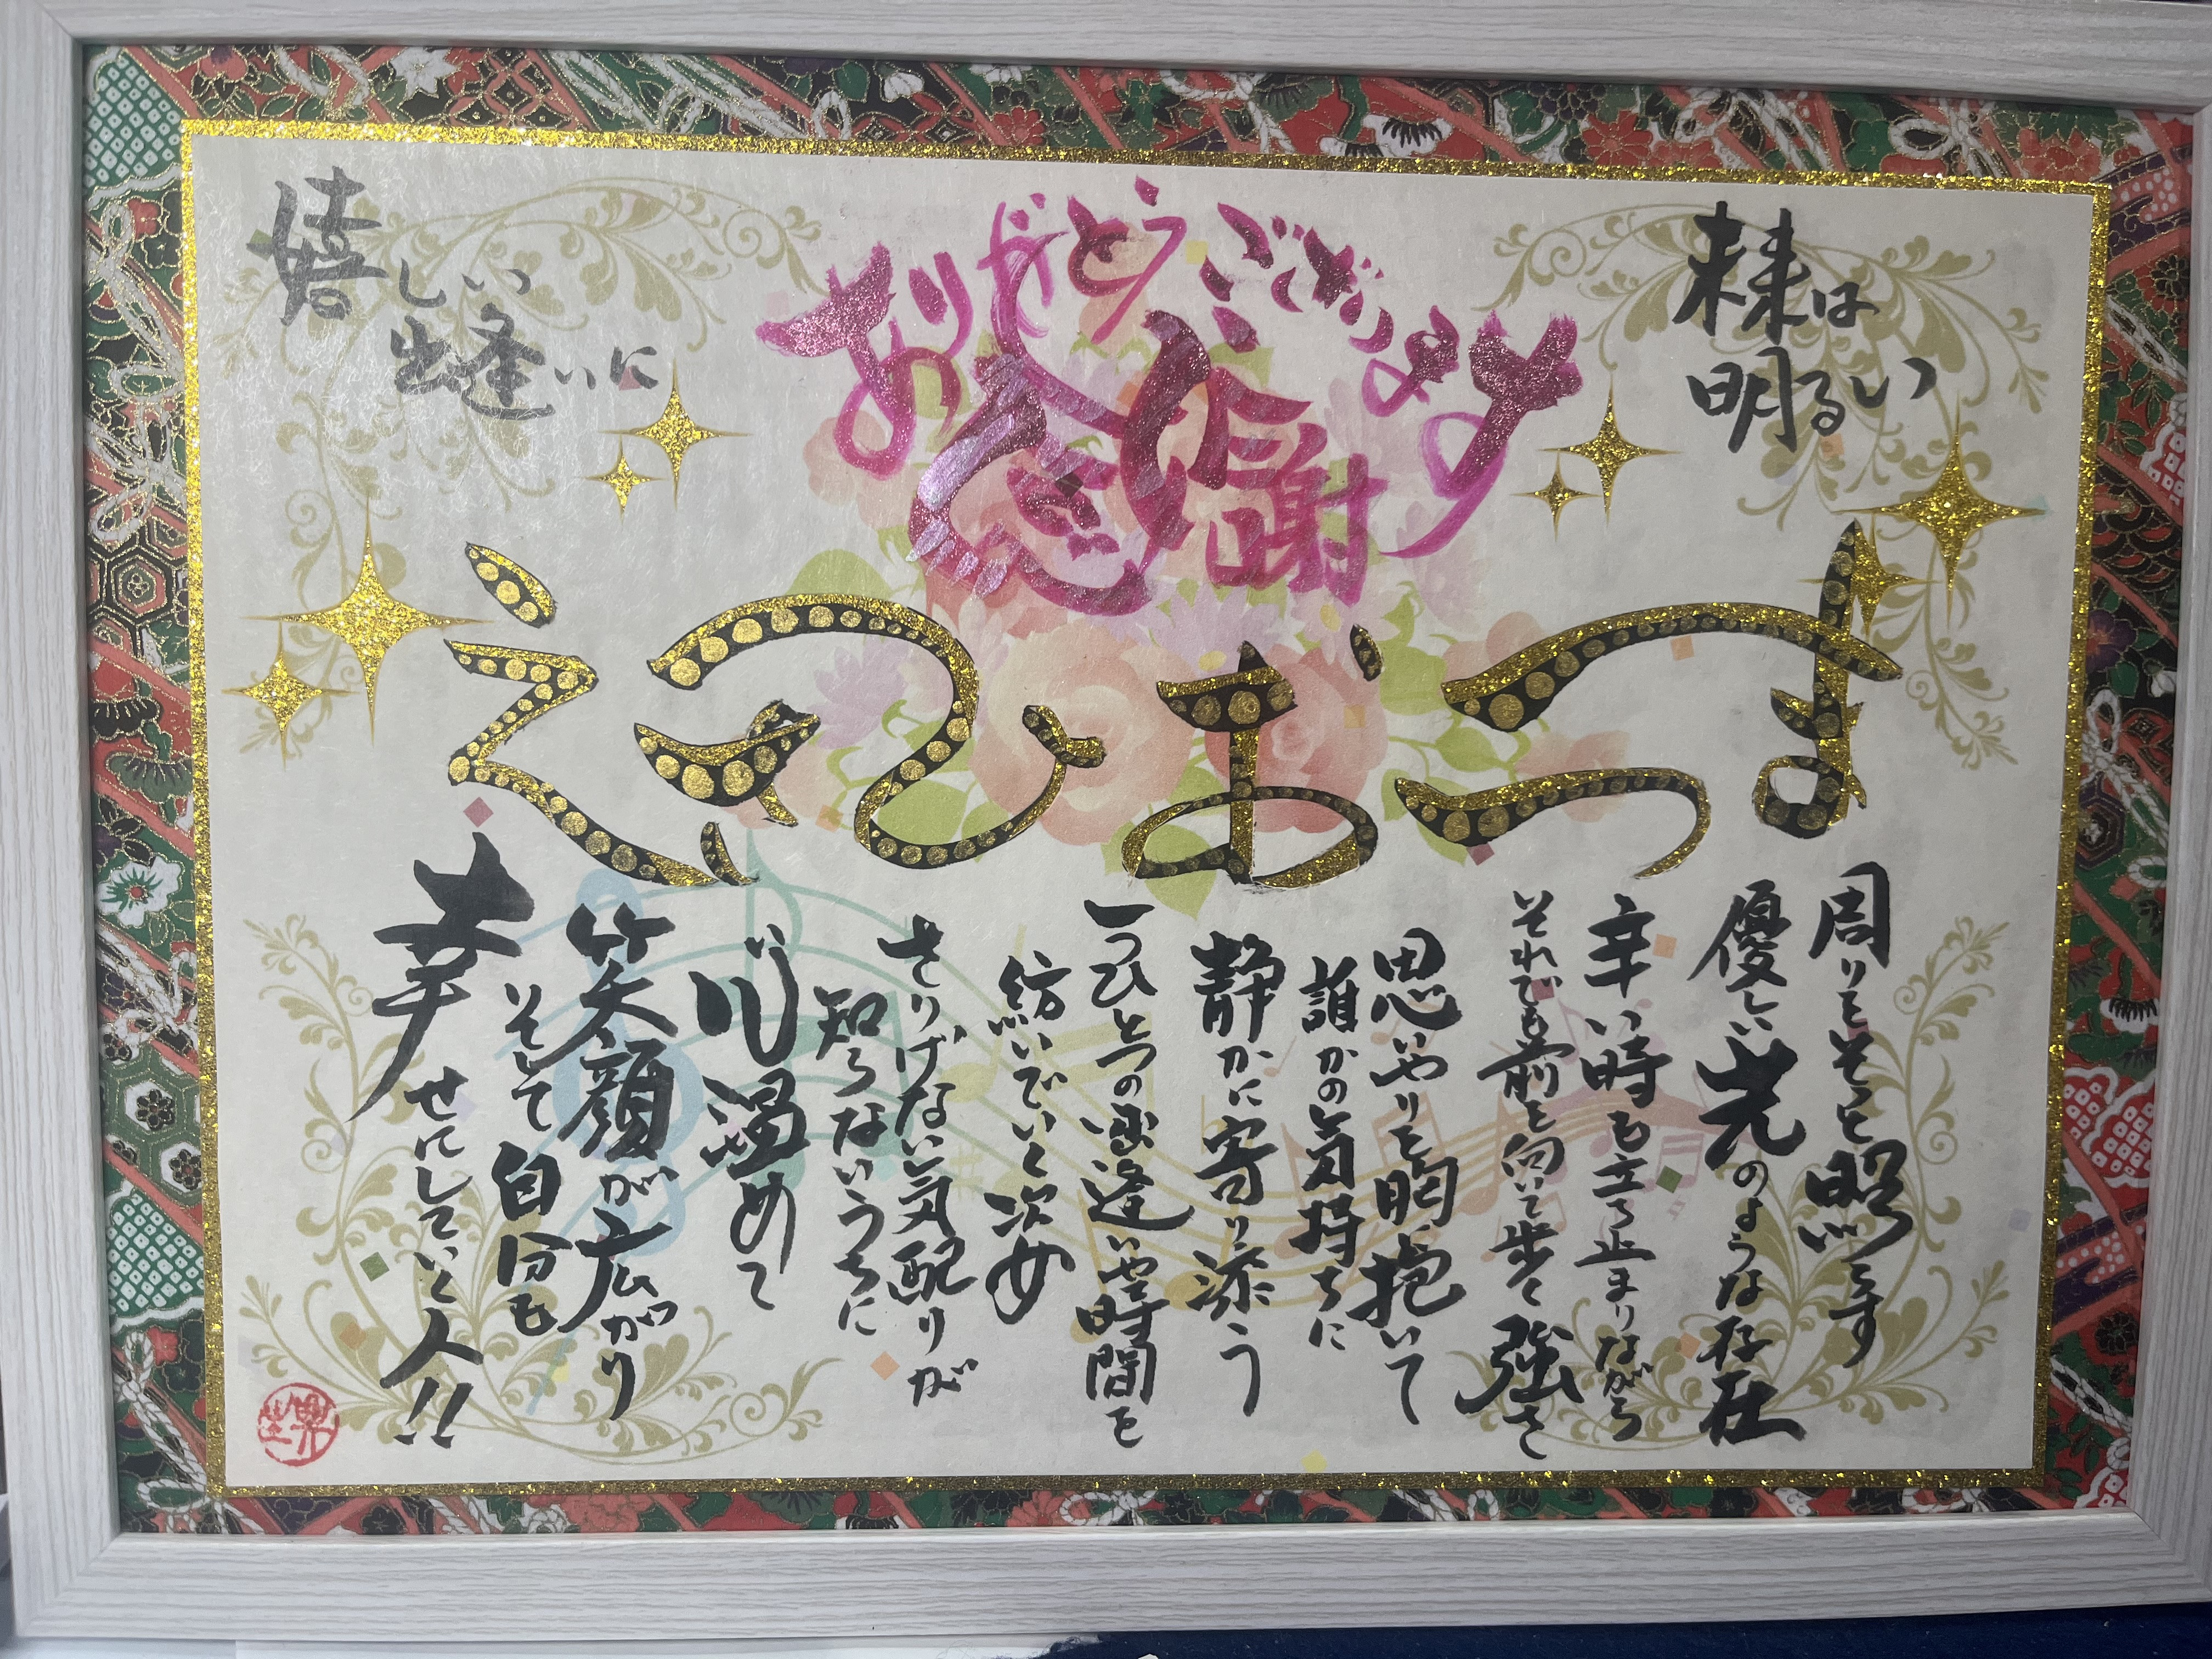 未来は
明るい
ありがとうございます
感謝
嬉しい
出逢いに
周りをそっと照らす
優しい光のような存在
辛い時も立ち止まりながら
それでも前を向いて歩く強さ
思いやりを胸に抱いて
誰かの気持ちに
静かに寄り添う
一つひとつの出逢いや時間を
紡いでいく次女
さりげない気配りが
知らないうちに
心温めて
笑顔が広がり
そして自分も
幸せにしていく人!!